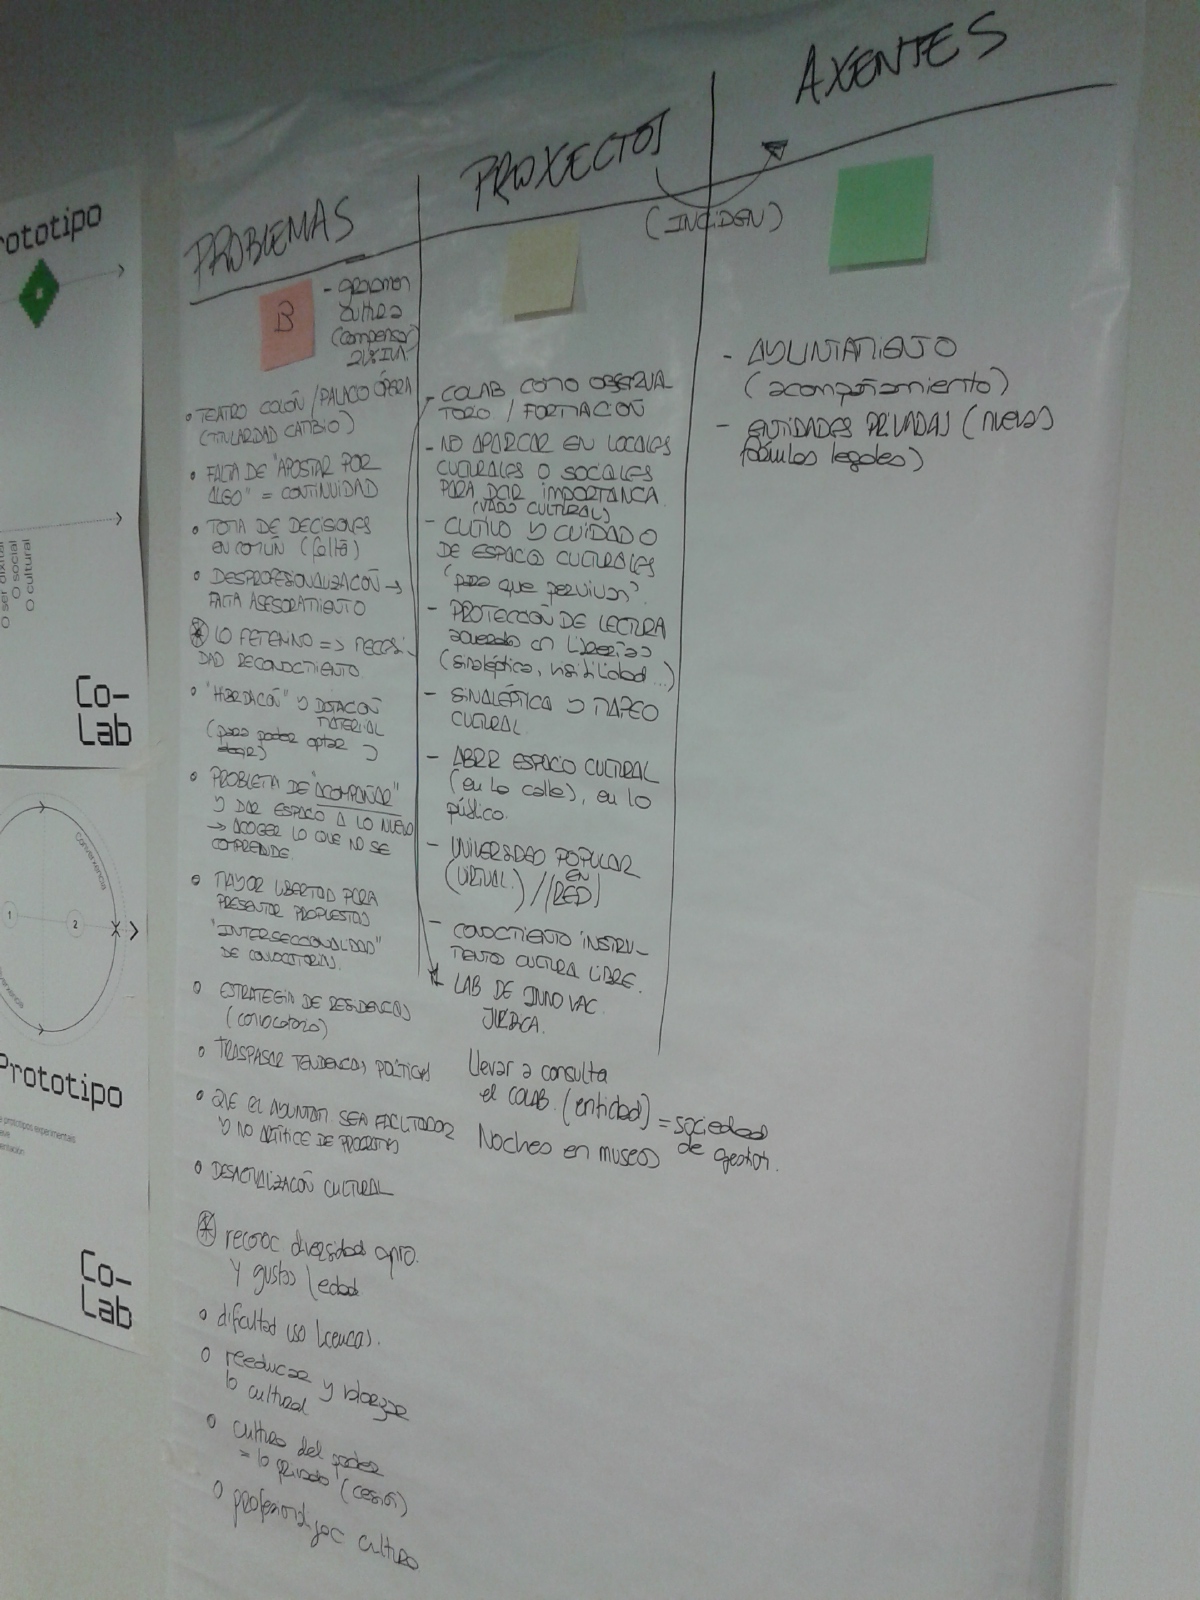 AXENTES
PROXECTOS
PROBLEMAS
(INCIDEN)
B
cultura
(compensar
- AYUNTAMIENTO
(acompañamiento)
- ENTIDADES PRIVADAS (nuevas
fórmulas legales)
• TEATRO COLÓN / PALACIO ÓPERA
(TITULARDAD CAMBIO)
• FALTA DE "APOSTAR POR
ALGO" = CONTINUIDAD
• TOMA DE DECISIONES
EN COMÚN (falta)
• DESPROFESIONALIZACIÓN →
FALTA ASESORAMIENTO
LO FEMENINO => NECESI-
DAD RECONOCIMIENTO
• "HIBRIDACIÓN" Y DOTACIÓN
MATERIAL
(para poder optar
• PROBLEMA DE "ACOMPAÑAR"
Y DAR ESPACIO A LO NUEVO
→ ACOGER LO QUE NO SE
COMPRENDE.
• MAYOR LIBERTAD PARA
PRESENTAR PROPUESTAS
"INTERSECCIONALIDAD"
DE CONVOCATORIAS.
• ESTRATEGIA DE RESIDENCIAS
(convocatoria)
• TRASPASAR TENDENCIAS POLÍTICAS
• QUE EL AYUNTAM. SEA FACILITADOR
Y NO ARTÍFICE DE PROPUESTAS
• DESACRALIZACIÓN CULTURAL
reconoc diversidad
y gustos / edad
• dificultad uso licencias.
• reeducar y valorizar
lo cultural
• cultura del poder
= lo privado (cesión)
• profesionalizac cultura
- COLAB COMO OBSERVA
TORO / FORMACIÓN
- NO APARCAR EN LOCALES
CULTURALES O SOCIALES
PARA DAR IMPORTANCA.
(VADO CULTURAL)
- CULTIVO Y CUIDADO
DE ESPACIOS CULTURALES
(para que pervivan).
- PROTECCIÓN DE LECTURA
acuerdo cn librerías
(sinaléptica, visibilidad ...)
- SINALÉPTICA Y MAPEO
CULTURAL.
- ABRIR ESPACIO CULTURAL
(en la calle), en lo
público.
- UNIVERSIDAD POPULAR
(VIRTUAL.) // (EN RED)
- CONOCIMIENTO INSTRU-
MENTO CULTURA LIBRE.
LAB DE INNOVAC.
JURÍDICA.
Llevar a consulta
el COLAB. (entidad) = sociedad
de gestión.
Noches en museos
rototipo
O ser dixital
O social
O cultural
Co-
Lab
Converxencia
1
2
Prototipo
Co-
Lab